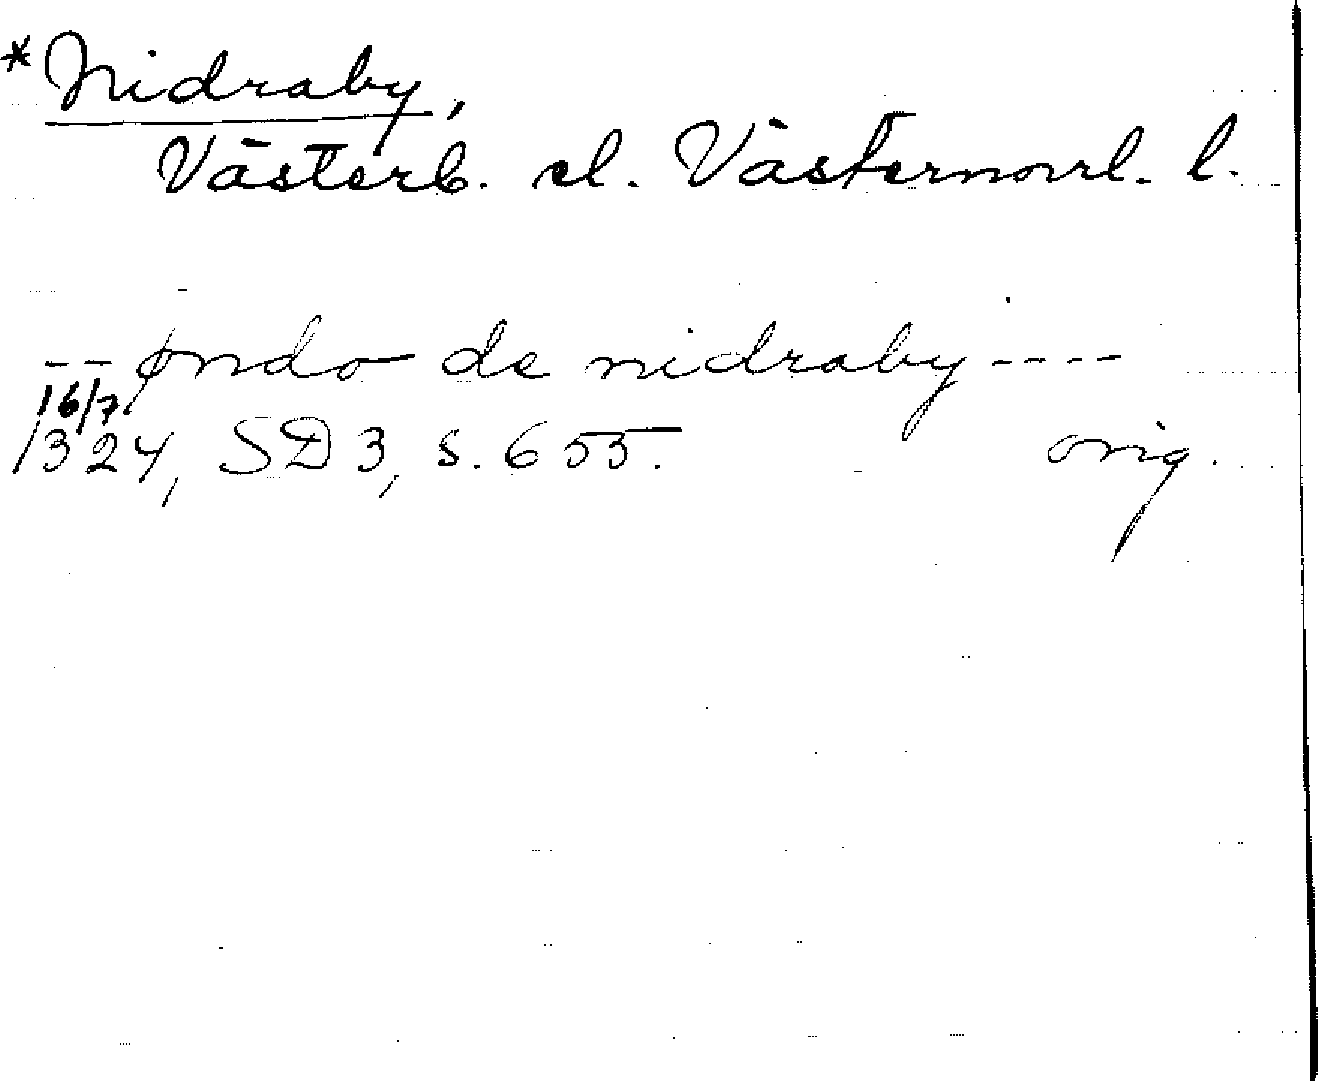 *Nidraby,
Västerb. el. Västernorrl. l.
-- øndo de nidraby ----
16/7
1324, SD 3, s. 655. orig.